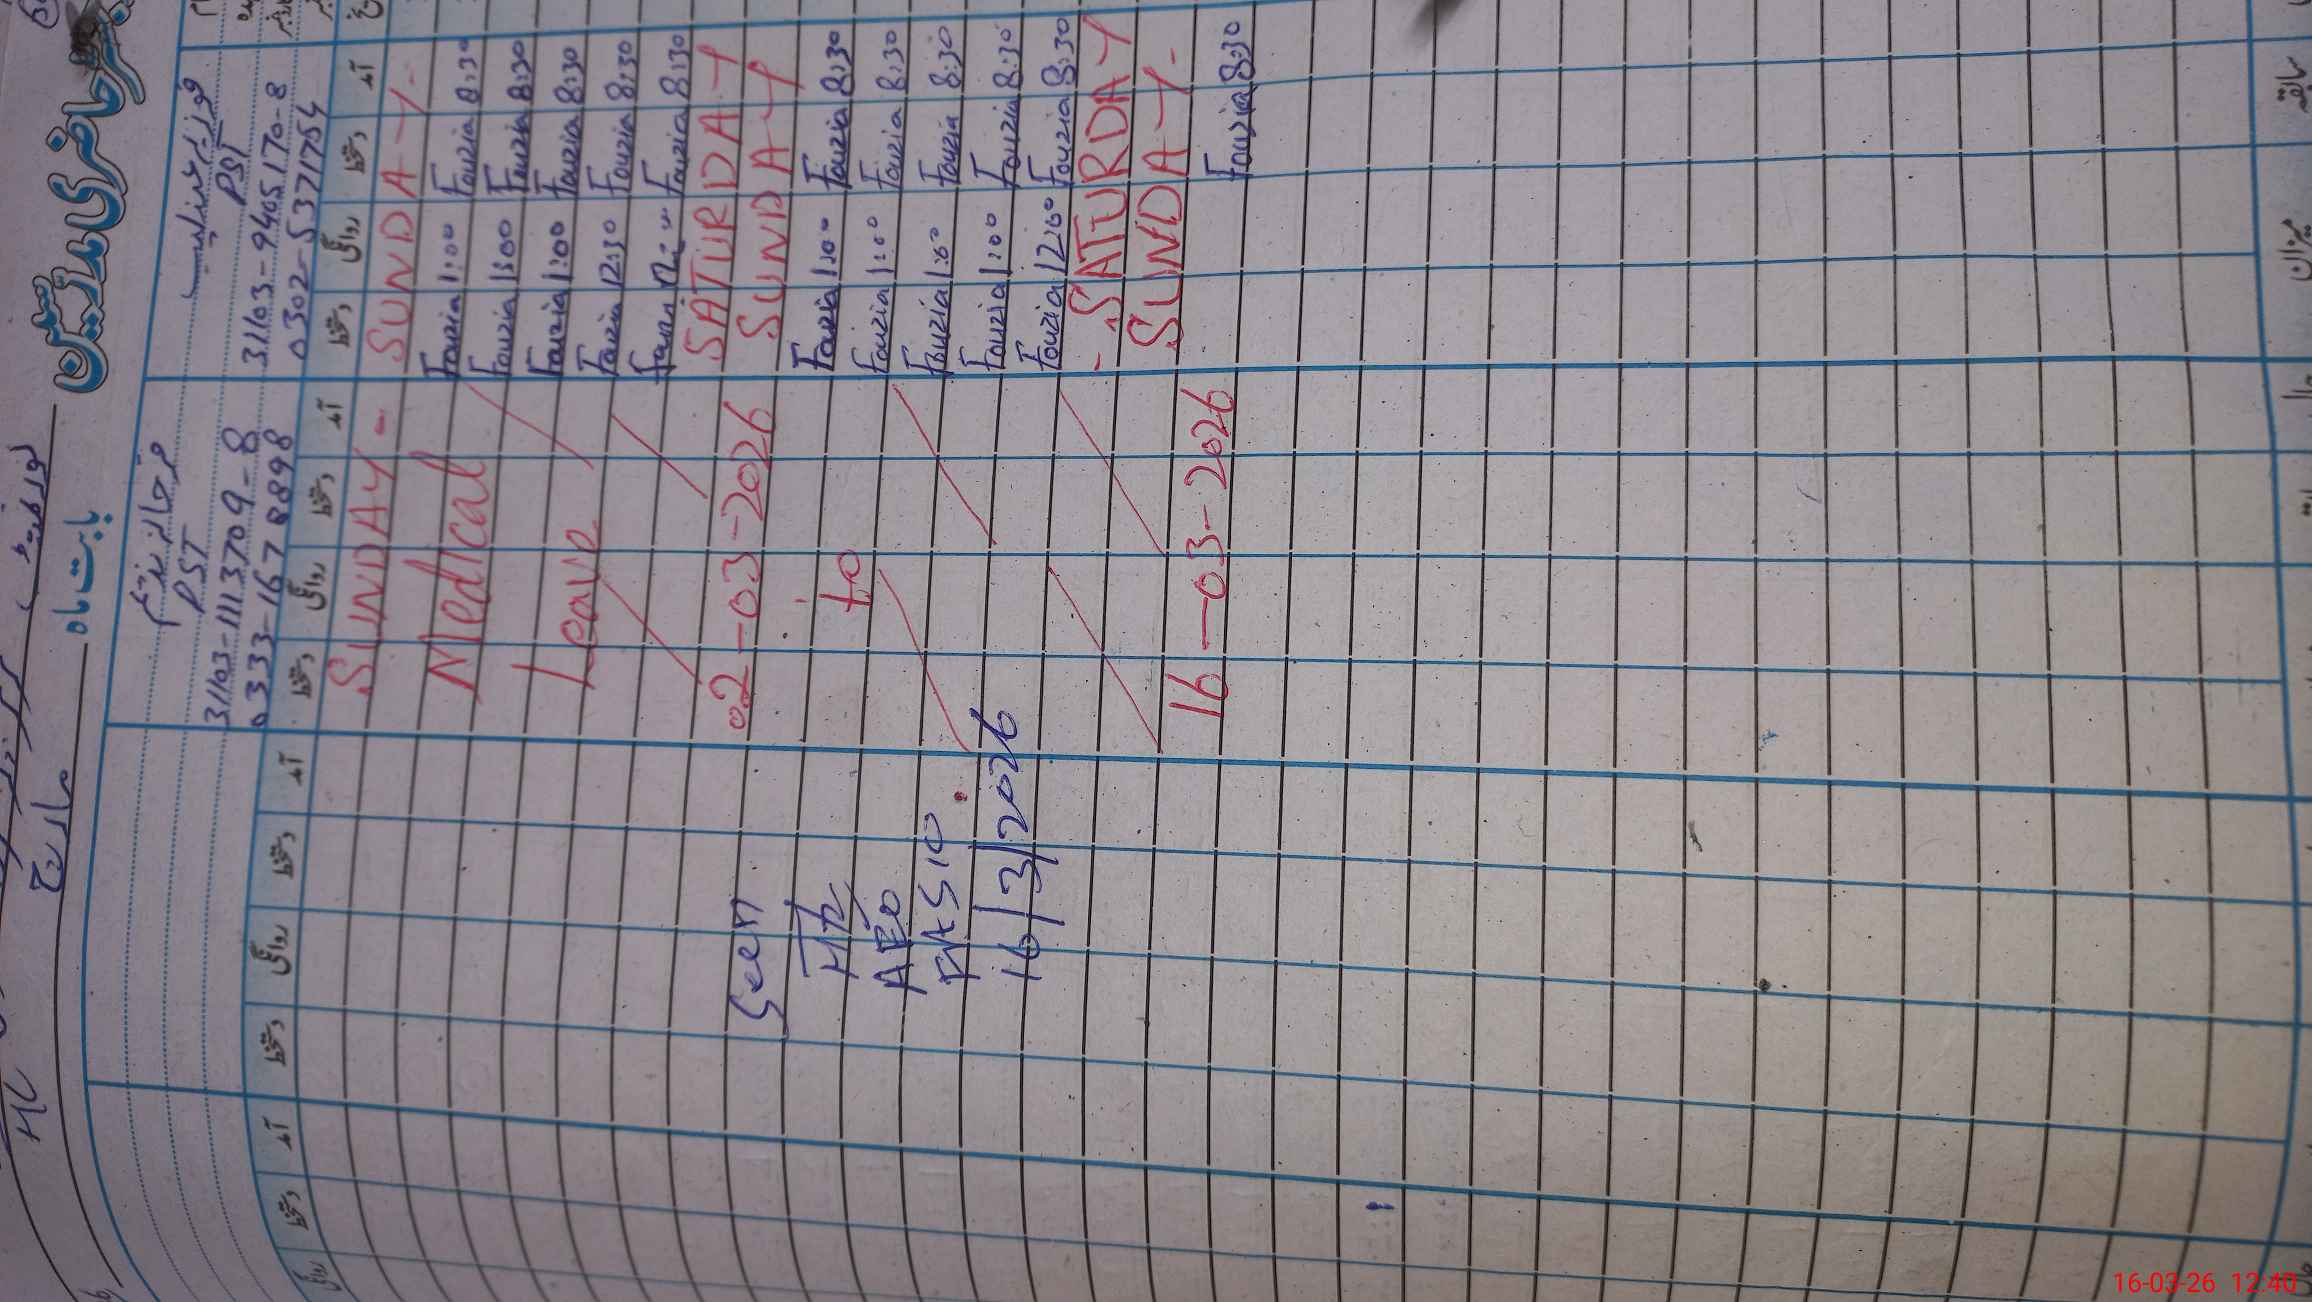 حاضری مدرسین
بابت ماہ مارچ
فوزیہ عنایت
PST
31103-9405170-8
0302-5371754
PST
31103-1113709-8
0333-1678898
آمد دستخط روانگی دستخط آمد دستخط روانگی دستخط آمد دستخط روانگی دستخط آمد دستخط روانگی
SUNDAY - SUNDAY -
8:30 Fouzia 1:00 Fouzia Medical
8:30 Fouzia 1:00 Fouzia
8:30 Fouzia 1:00 Fouzia Leave
8:30 Fouzia 12:30 Fouzia
8:30 Fouzia
SATURDAY 02-03-2026
SUNDAY Seen
8:30 Fouzia 1:00 Fouzia to
8:30 Fouzia 1:00 Fouzia AEO
8:30 Fouzia 1:00 Fouzia
8:30 Fouzia 1:00 Fouzia 16/3/2026
8:30 Fouzia 12:00 Fouzia
SATURDAY -
SUNDAY -
8:30 Fouzia 16-03-2026
سابقہ
میزان
16-03-26 12:40